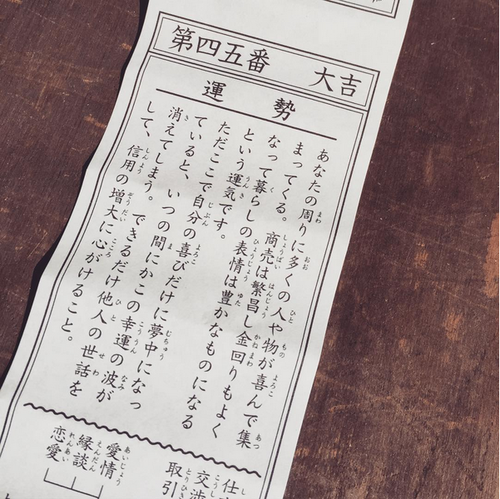 第四五番 大吉
運勢
あなたの周りに多くの人や物が喜んで集
まってくる。商売は繁昌し金回りもよく
なって暮らしの表情は豊かなものになる
という運気です。
ただここで自分の喜びだけに夢中になっ
ていると、いつの間にかこの幸運の波が
消えてしまう。できるだけ他人の世話を
して、信用の増大に心がけること。
交渉
取引
愛情
縁談
恋愛